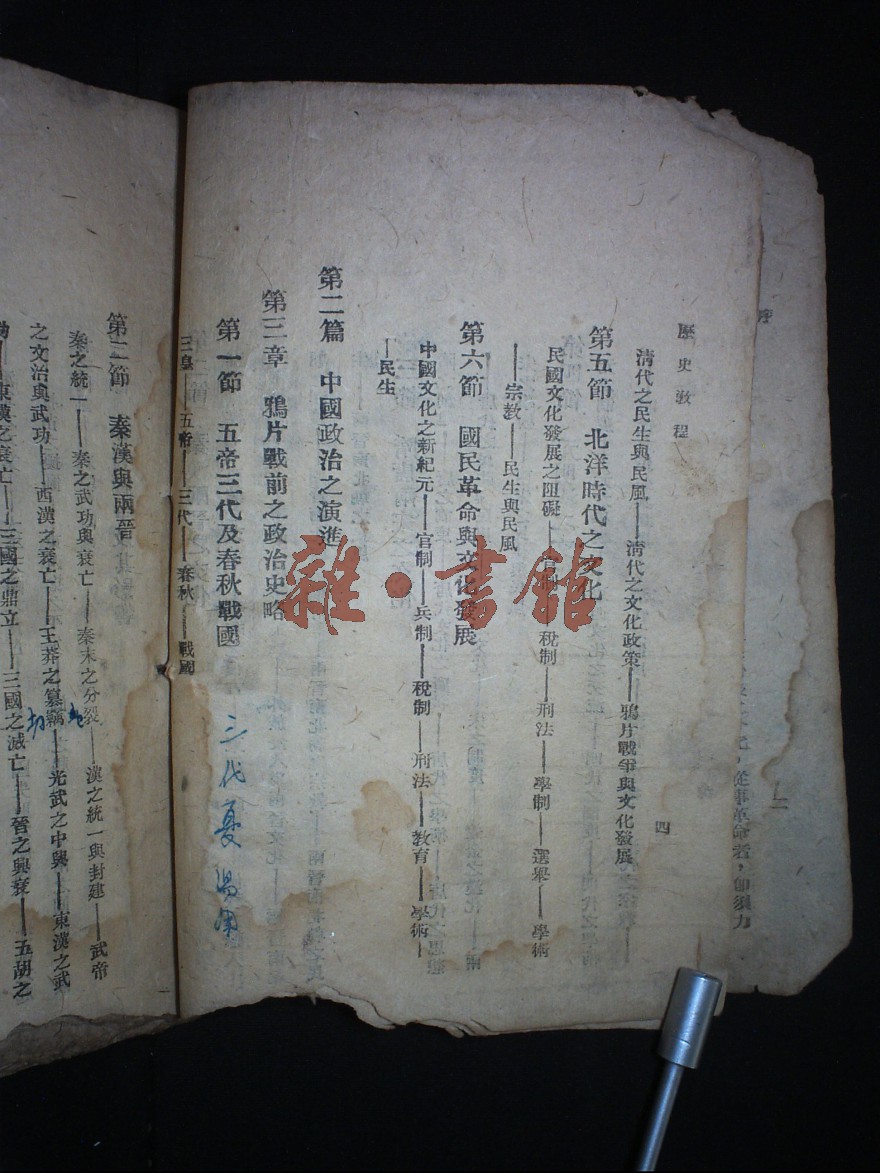 歷史敎程
四
清代之民生與民風——清代之文化政策——鴉片戰爭與文化發展
第五節 北洋時代之文化
民國文化發展之阻礙——官制——稅制——刑法——學制——選舉——學術
——宗敎——民生與民風
第六節 國民革命與文化發展
中國文化之新紀元——官制——兵制——稅制——刑法——敎育——學術——
——民生
第二篇 中國政治之演進
第三章 鴉片戰前之政治史略
第一節 五帝三代及春秋戰國
三代夏
三皇——五帝——三代——春秋——戰國
第二節 秦漢與兩晉
秦之統一——秦之武功與衰亡——秦末之分裂——漢之統一與封建——武帝
之文治與武功——西漢之衰亡——王莽之篡竊——光武之中興——東漢之武
——東漢之衰亡——三國之鼎立——三國之滅亡——晉之興衰——五胡之
序
二
從事革命者，卽須力
雜·書館